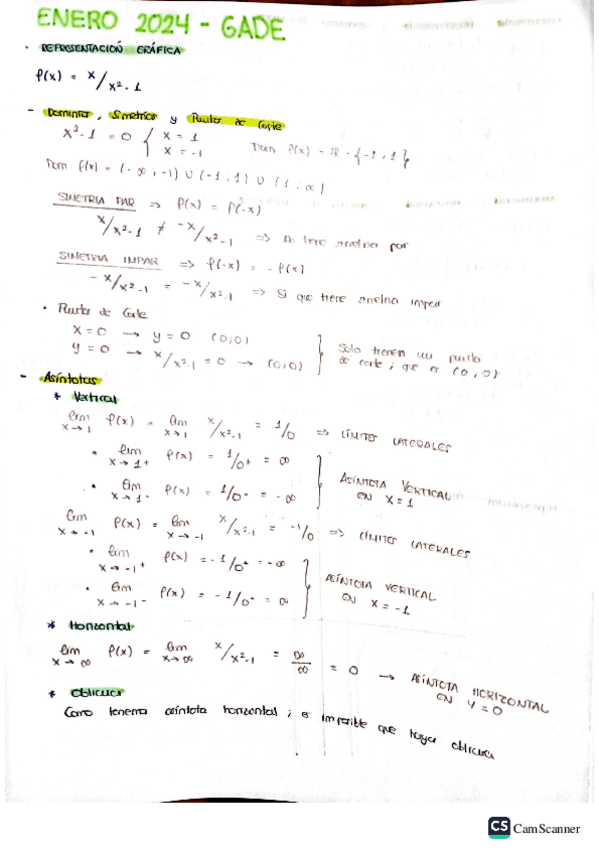 ENERO 2024 - GADE
· REPRESENTACIÓN GRÁFICA
f(x) = x/x²-1
- Dominio, Simetrías y Puntos de Corte
x²-1 = 0 { x = 1
x = -1
Dom f(x) = ℝ - {-1, 1}
Dom f(x) = (-∞, -1) ∪ (-1, 1) ∪ (1, ∞)
SIMETRIA PAR ⇒ f(x) = f(-x)
x/x²-1 ≠ -x/x²-1 ⇒ No tiene simetria par
SIMETRIA IMPAR ⇒ f(-x) = -f(x)
-x/x²-1 = -x/x²-1 ⇒ Si que tiene simetria impar
· Puntos de Corte
x=0 → y=0 (0,0)
y=0 → x/x²-1 = 0 → (0,0)
} Solo tienen un punto
de corte, que es (0,0)
- Asíntotas
* Vertical
lim x→1 f(x) = lim x→1 x/x²-1 = 1/0 ⇒ LÍMITES LATERALES
· lim x→1+ f(x) = 1/0+ = ∞
· lim x→1- f(x) = 1/0- = -∞
} ASÍNTOTA VERTICAL
EN X=1
lim x→-1 f(x) = lim x→-1 x/x²-1 = -1/0 ⇒ LÍMITES LATERALES
· lim x→-1+ f(x) = -1/0+ = -∞
· lim x→-1- f(x) = -1/0- = ∞
} ASÍNTOTA VERTICAL
EN X=-1
* Horizontal
lim x→∞ f(x) = lim x→∞ x/x²-1 = ∞/∞ = 0 → ASÍNTOTA HORIZONTAL
EN Y=0
* Oblicua
Como tenemos asíntota horizontal, es imposible que haya oblicua
CS CamScanner